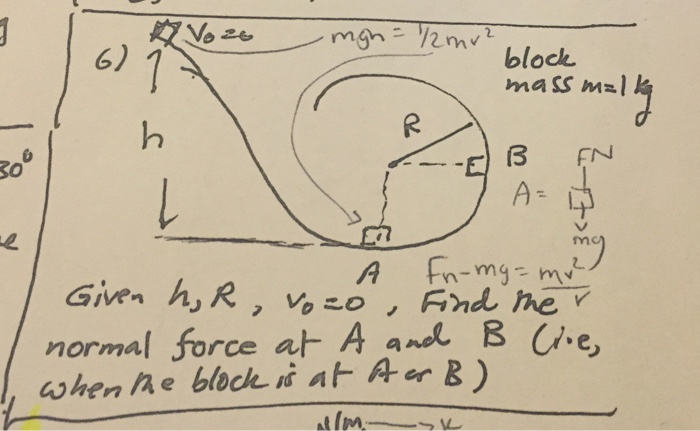 V₀=0
mgh = 1/2mv²
6)
block
mass m=1kg
h
R
30⁰
B
FN
A=
mg
A
Fn-mg = mv²/r
Given h, R, V₀=0, Find the
normal force at A and B (i.e,
when the block is at A or B)